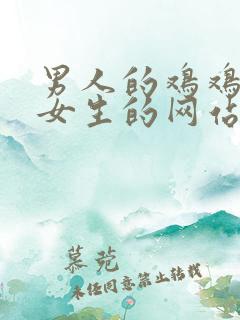 男人的鸡鸡
女生的网站
慕菀
未经同意禁止转载